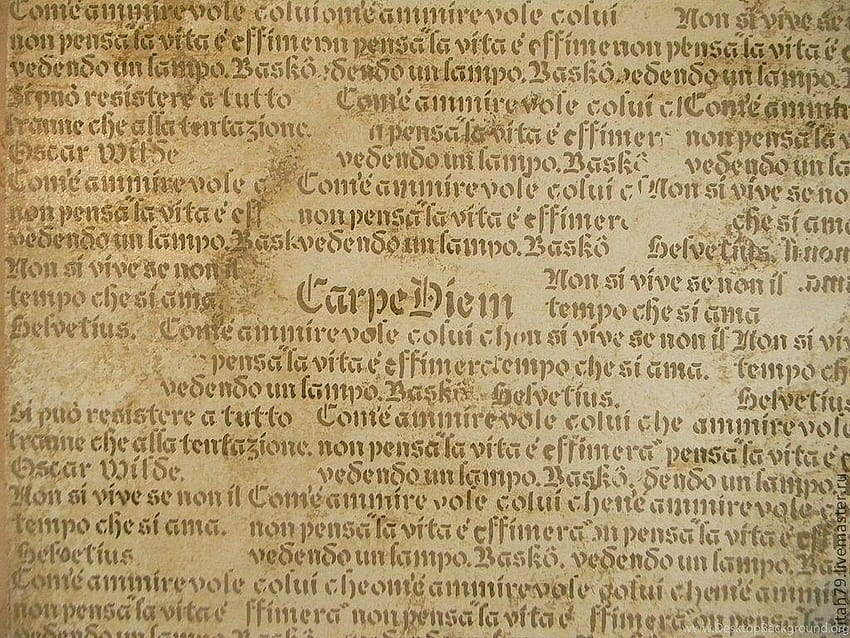 Com'è ammirevole colui om'è ammirevole colui Non si vive se
non pensa "la vita è effime non pensa "la vita è effime non pensa "la vita è e
vedendo un lampo. Baskô. dendo un lampo. Baskô. vedendo un lampo.
Si può resistere a tutto Com'è ammirevole colui c Com'è ammir
tranne che alla tentazione. pensa "la vita è effimer non pensa "la v
Oscar Wilde vedendo un lampo. Baskô vedendo un la
Com'è ammirevole c Com'è ammirevole colui c Non si vive se no
non pensa "la vita è eff non pensa "la vita è effimer che si ama
vedendo un lampo. Bask vedendo un lampo. Baskô Helvetius.
Non si vive se non il Non si vive se non il
tempo che si ama. Carpe Diem tempo che si ama
Helvetius. Com'è ammirevole colui ch n si vive se non il Non si viv
pensa "la vita è effimer tempo che si ama. tempo ch
vedendo un lampo. Baskô Helvetius. Helvetius
Si può resistere a tutto Com'è ammirevole colui che ammirevole
tranne che alla tentazione. non pensa "la vita è effimera" pensa "la vita è e
Oscar Wilde. vedendo un lampo. Baskô. dendo un lampo.
Non si vive se non il Com'è ammirevole colui che n'è ammirevole
tempo che si ama. non pensa "la vita è effimera" n pensa "la vita è effimera
Helvetius vedendo un lampo. Baskô. vedendo un lampo. Ba
Com'è ammirevole colui che om'è ammirevole colui che m'è ammi
non pensa "la vita è ffimera" non pensa "la vita è ffimera
vedendo un lampo. Baskô vedendo un lampo.
www.DesktopBackground.org
tah79.livemaster.ru